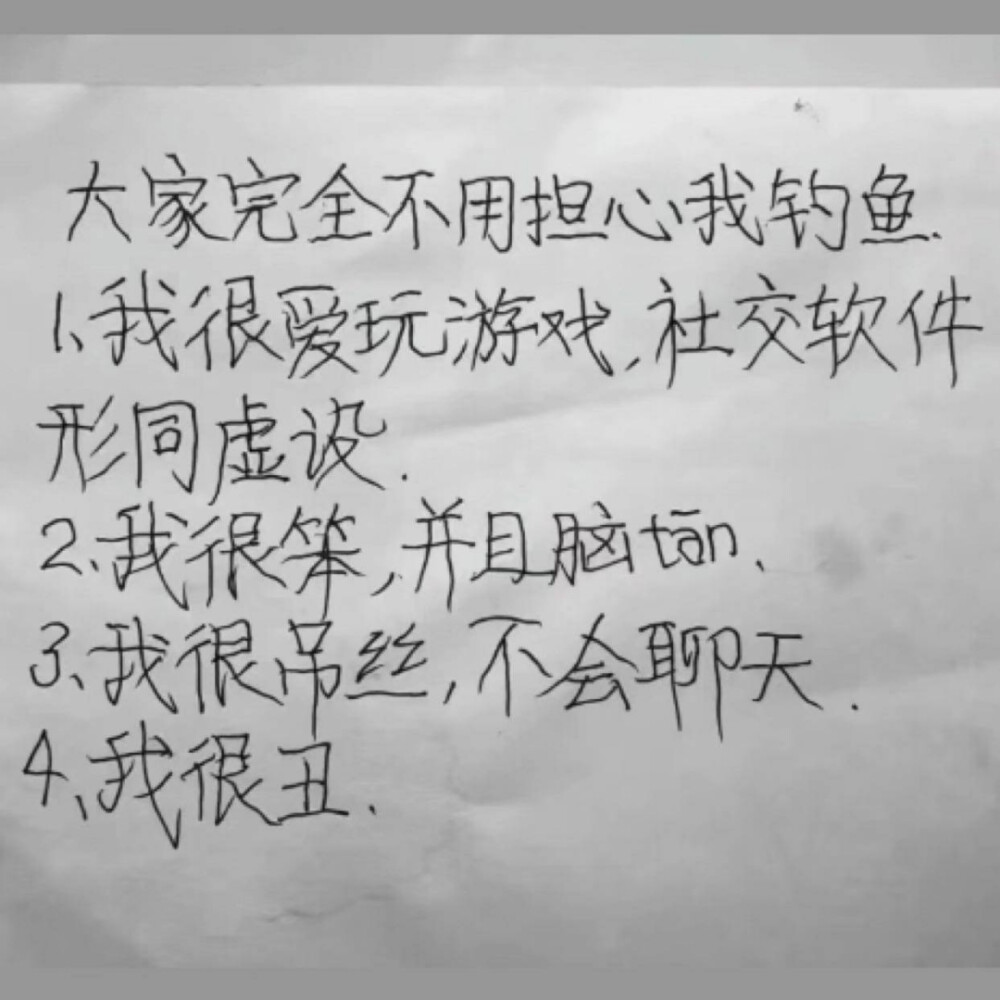 大家完全不用担心我钓鱼.
1、我很爱玩游戏,社交软件
形同虚设.
2、我很笨,并且脑tān.
3、我很吊丝,不会聊天.
4、我很丑.